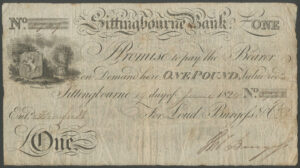 No. Sittingbourne Bank. ONE
I Promise to pay the Bearer
on Demand here ONE POUND Value recd
Sittingbourne day of 182 No.
Entd. For Loud, Burgess & Co
£One
Burgess